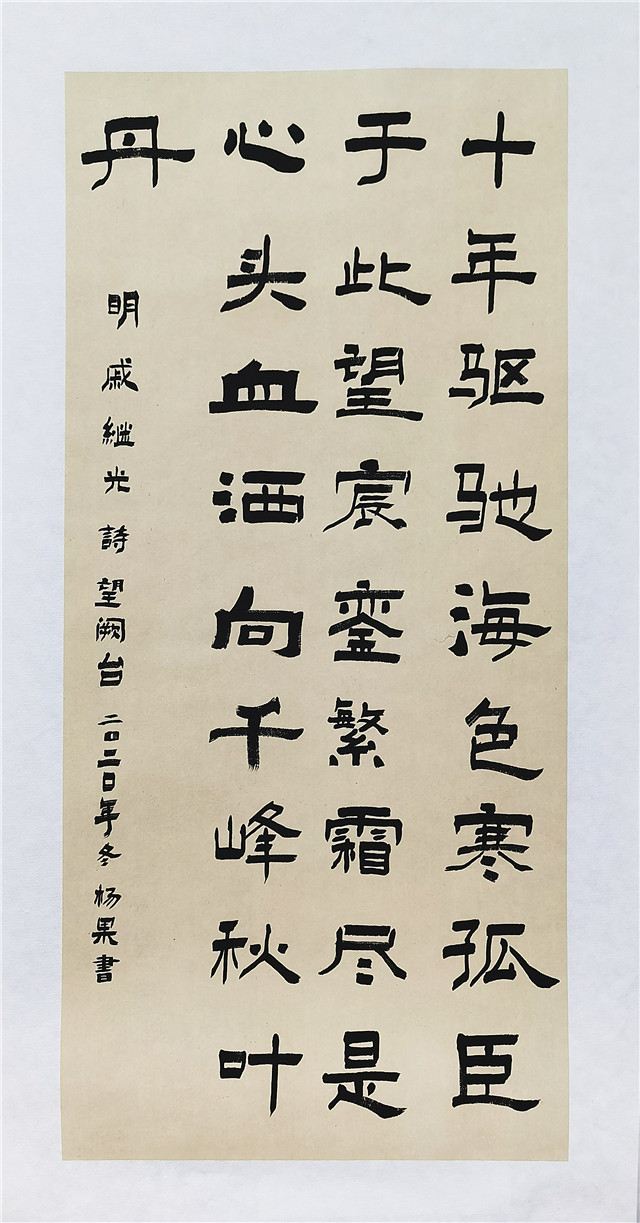 十年驱驰海色寒孤臣
于此望宸銮繁霜尽是
心头血洒向千峰秋叶
丹
明戚继光詩望阙台二〇二〇年冬杨果書